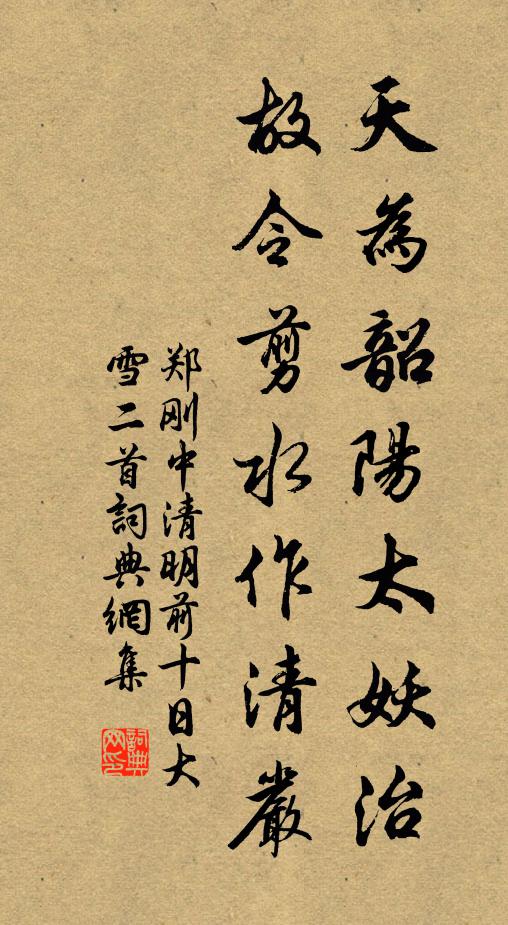 天為韶陽太妖治
故令剪水作清嚴
郑刚中清明前十日大
雪二首詞典網集
詞典
网印